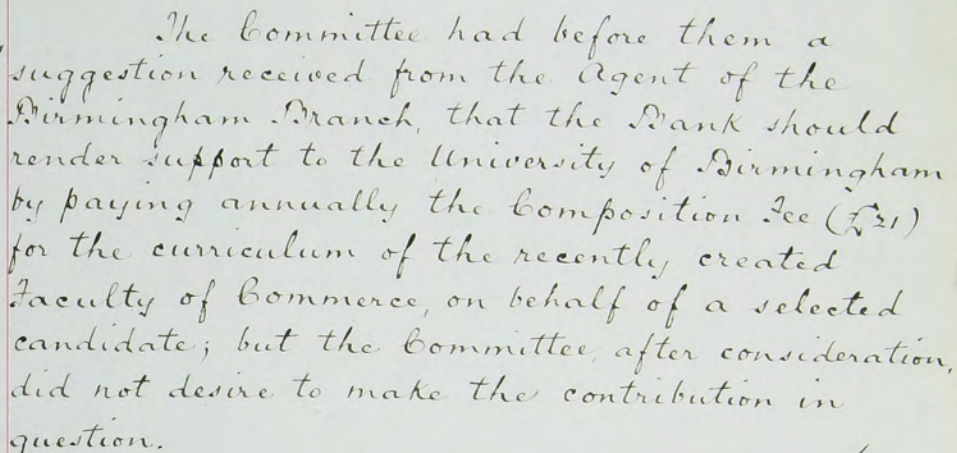 The Committee had before them a
suggestion received from the Agent of the
Birmingham Branch, that the Bank should
render support to the University of Birmingham
by paying annually the Composition Fee (£21)
for the curriculum of the recently created
Faculty of Commerce, on behalf of a selected
candidate; but the Committee, after consideration,
did not desire to make the contribution in
question.